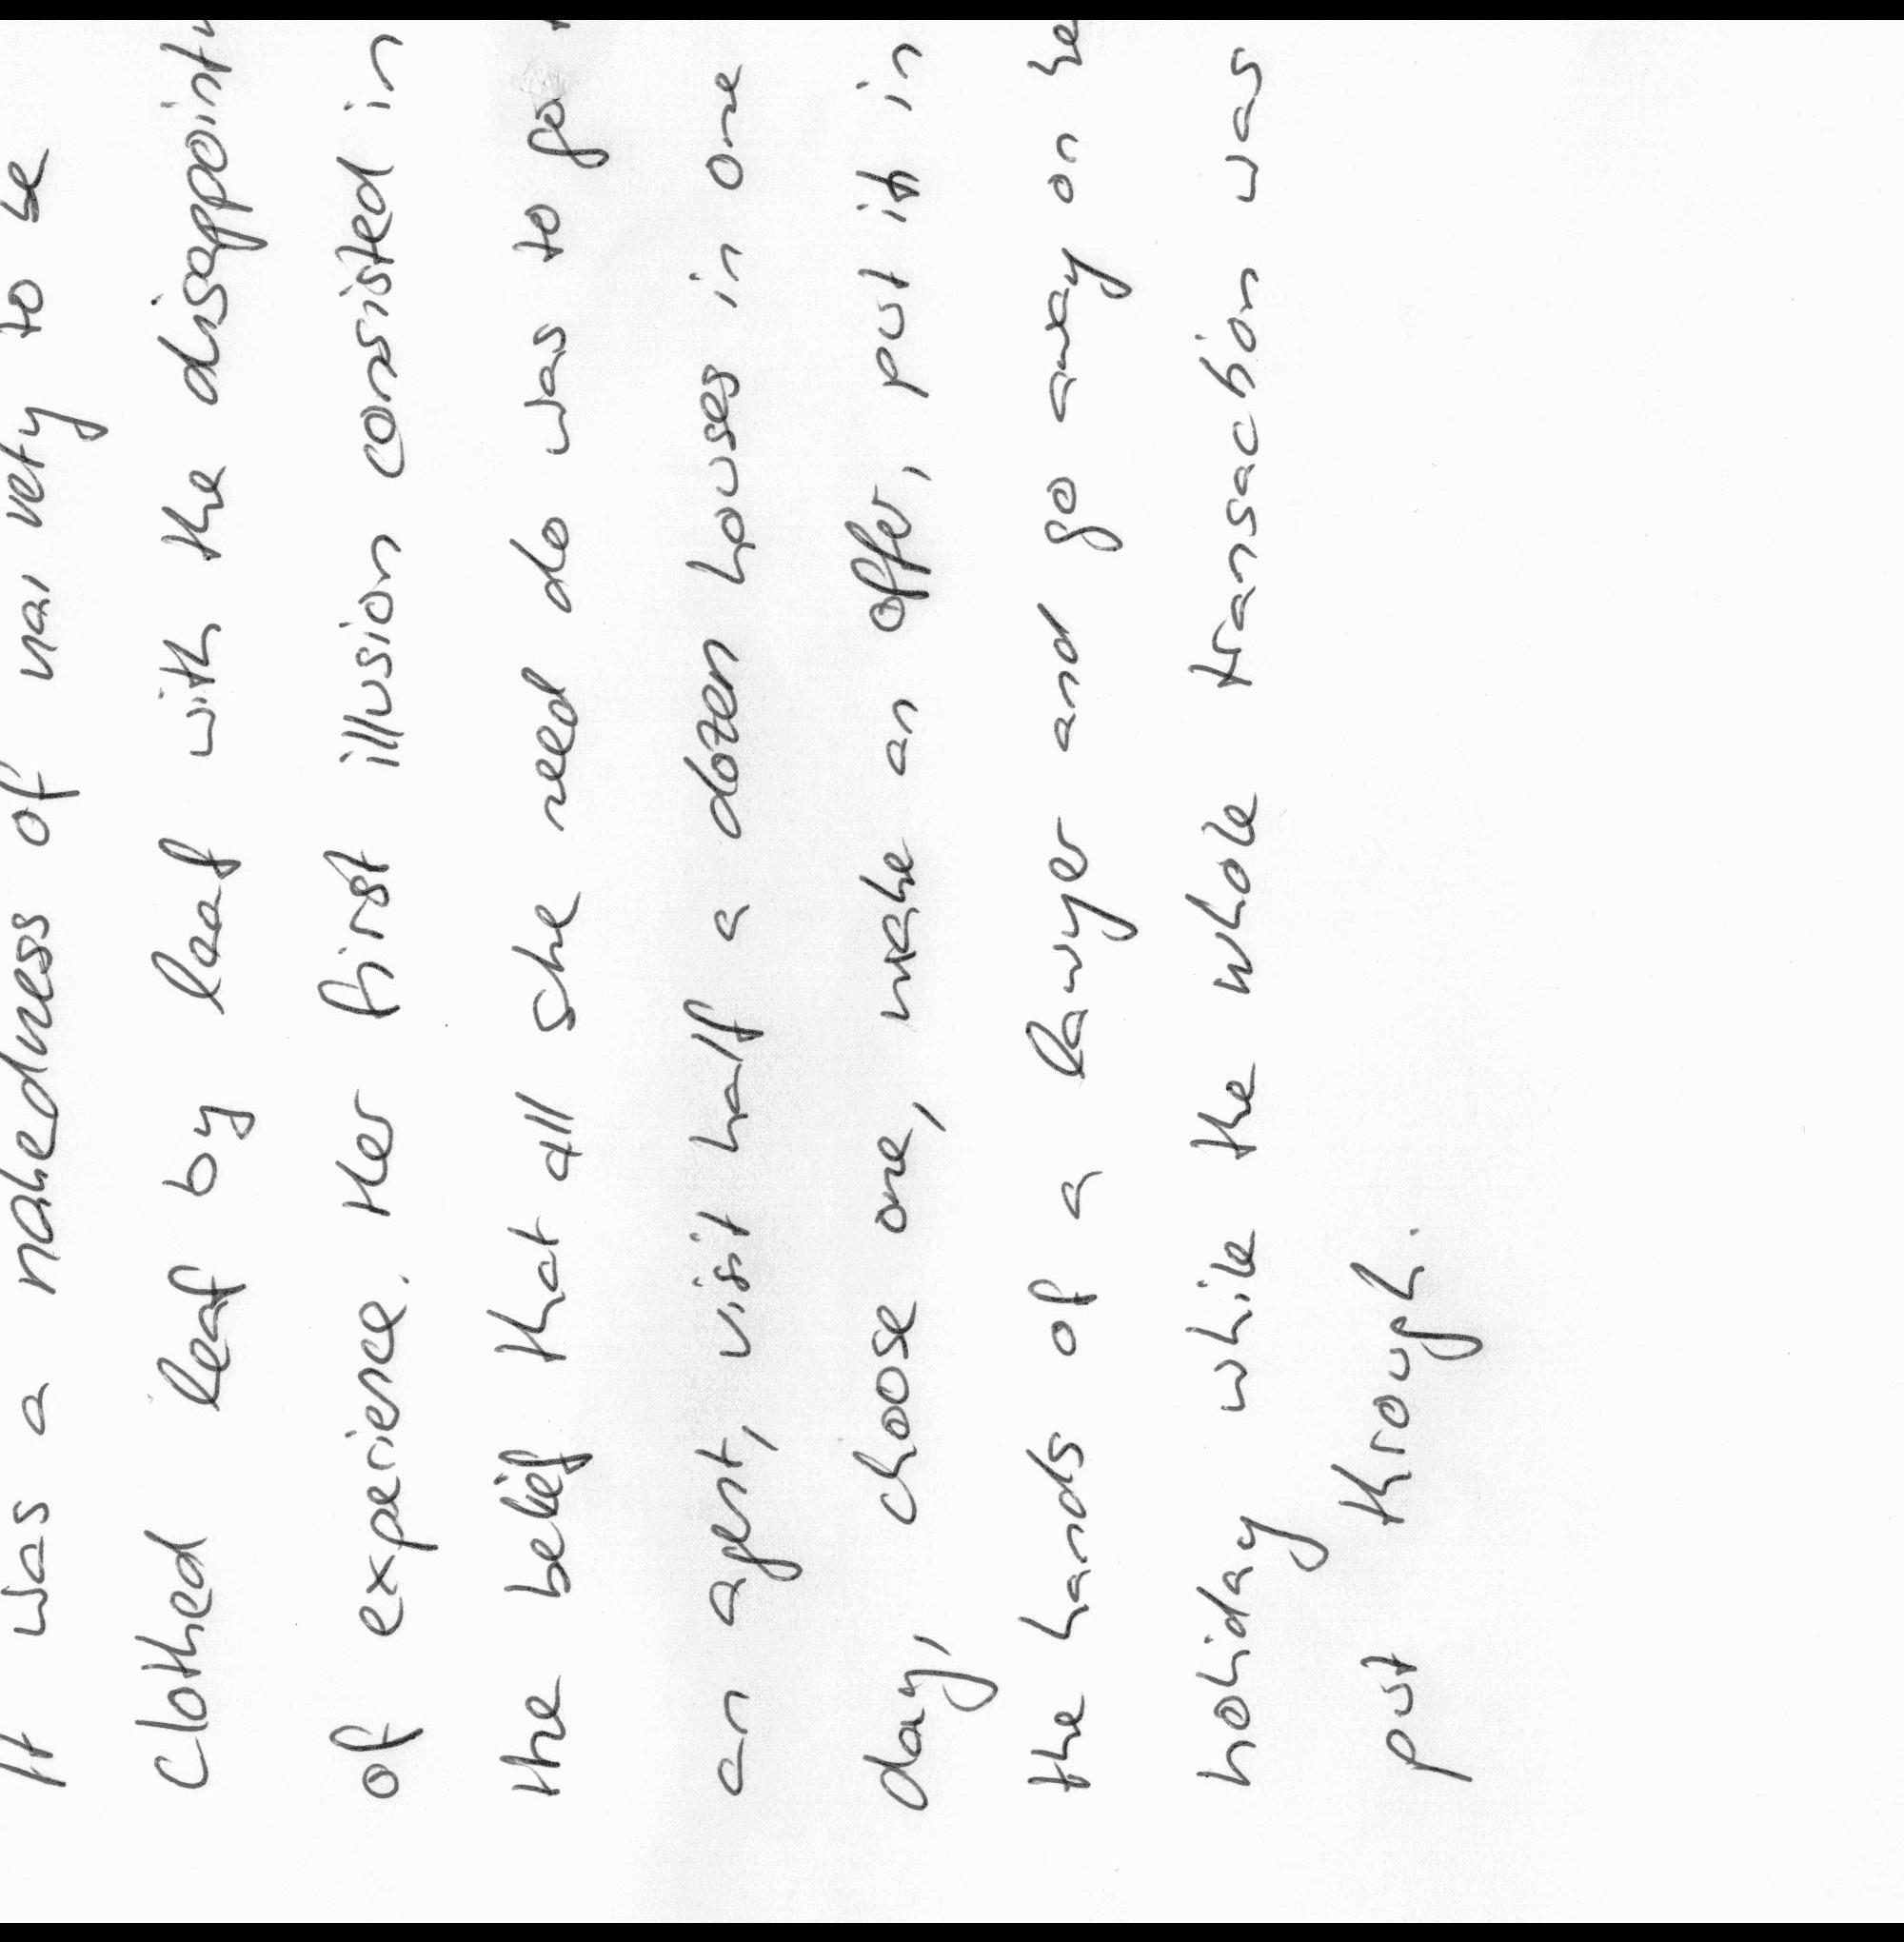 It was a nakedness of nai vety to be
Clothed leaf by leaf with the
of experience. Her first illusion consisted in
the belief that all she need do was to go
an agent, visit half a dozen houses in one
day, choose one, make an offer, put it in
the hands of a lawyer and go away on
holiday while the whole transaction was
put through.